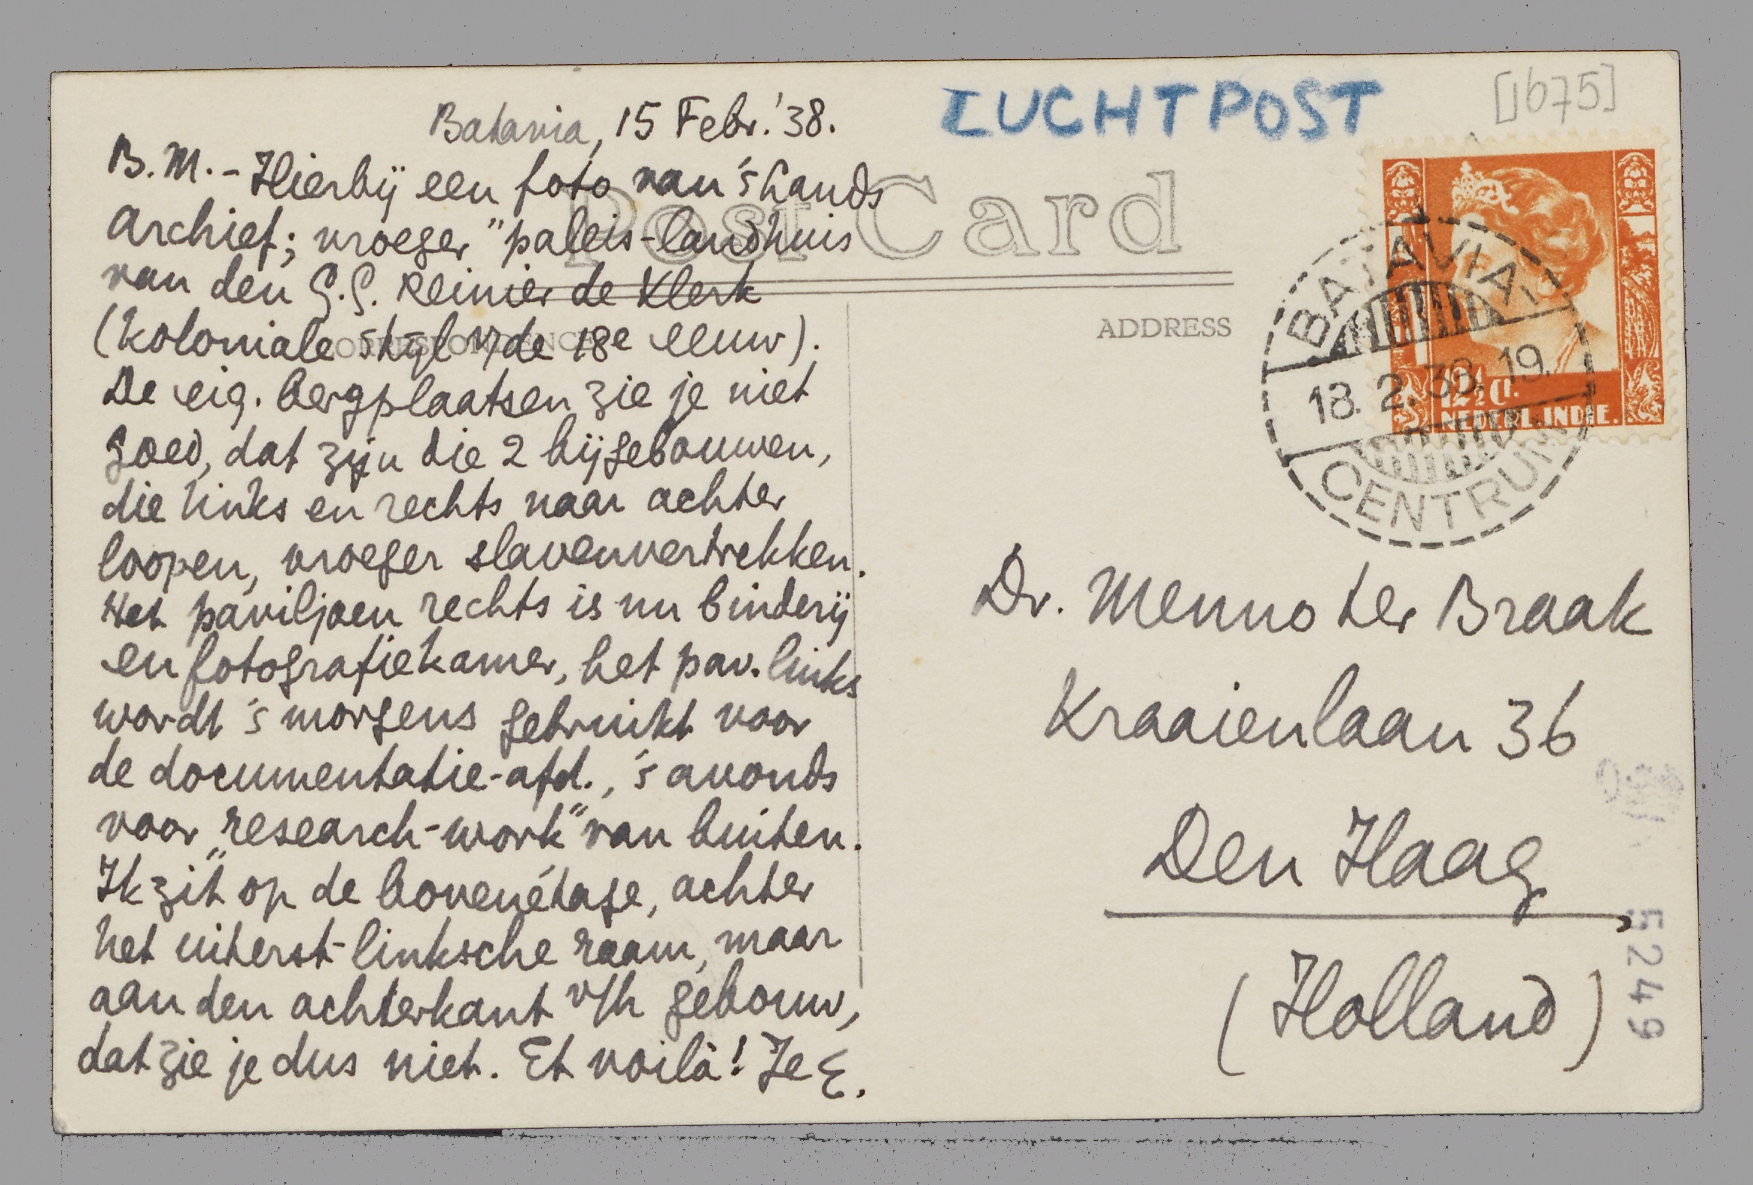 Batavia, 15 Febr. '38.
B.M. - Hierbij een foto van 's Lands
Archief; vroeger "paleis-landhuis
van den G.G. Reinier de Klerk
(koloniale stijl v/de 18e eeuw).
De eig. bergplaatsen zie je niet
goed, dat zijn die 2 bijgebouwen,
die links en rechts naar achter
loopen, vroeger slavenvertrekken.
Het paviljoen rechts is nu binderij
en fotografiekamer, het pav. links
wordt 's morgens gebruikt voor
de documentatie-afd., 's avonds
voor "research-work" van buiten.
Ik zit op de bovenétage, achter
het uiterst-linksche raam, maar
aan den achterkant v/h gebouw,
dat zie je dus niet. Et voilà! Je E.
LUCHTPOST
[1675]
Post Card
CORRESPONDENCE
ADDRESS
BATAVIA-
18.2.38.19.
CENTRUM
12½ ct.
NEDERL.INDIE.
Dr. Menno ter Braak
Kraaienlaan 36
Den Haag
(Holland)
5249